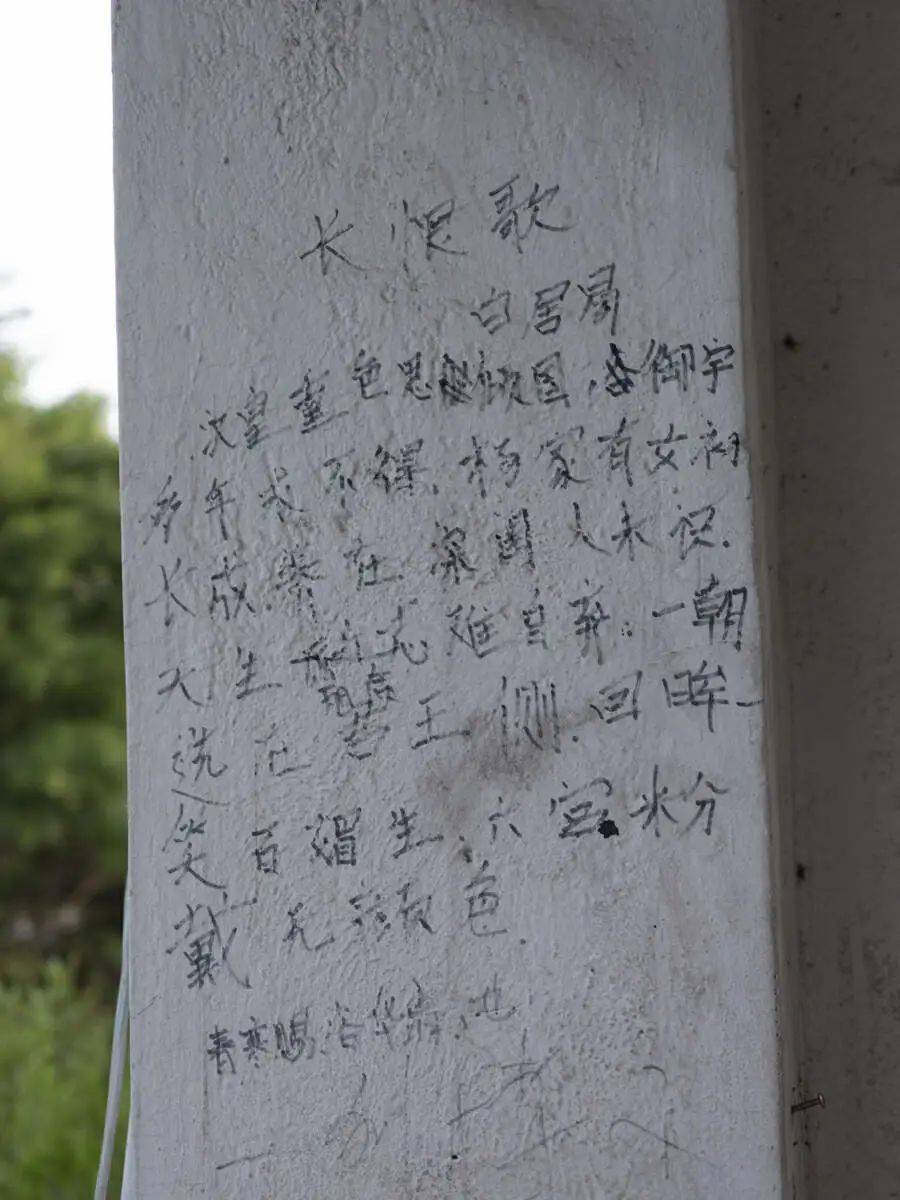 长恨歌
白居易
汉皇重色思倾国,御宇
多年求不得,杨家有女初
长成.养在深闺人未识.
天生丽质难自弃.一朝
选在君王侧.回眸一
笑百媚生.六宫粉
戴无颜色.
春寒赐浴华清池